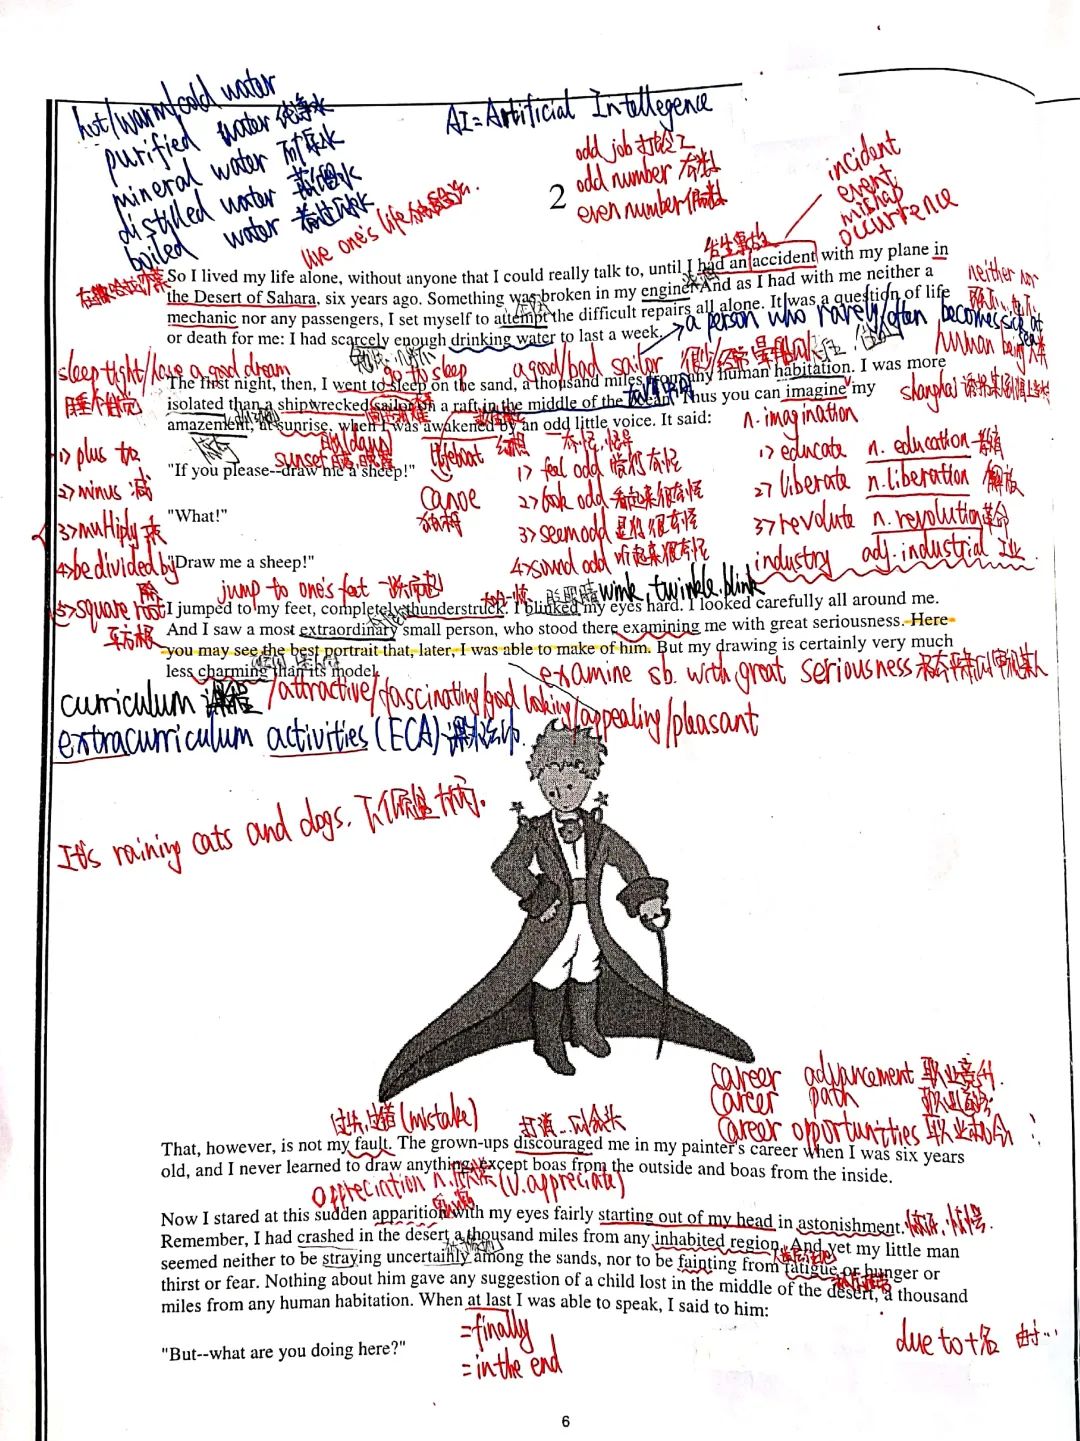 hot/warm/cold water
purified water 纯净水
mineral water 矿泉水
distilled water 蒸馏水
boiled water
live one's life
AI=Artificial Intellegence
odd job 打零工
odd number 奇数
even number 偶数
2
incident
event
mishap
occurrence
发生事故
So I lived my life alone, without anyone that I could really talk to, until I had an accident with my plane in
the Desert of Sahara, six years ago. Something was broken in my engine. And as I had with me neither a
mechanic nor any passengers, I set myself to attempt the difficult repairs all alone. It was a question of life
or death for me: I had scarcely enough drinking water to last a week.
neither nor
a person who rarely/often becomes sick at sea
a good/bad sailor
go to sleep
human being 人类
sleep tight/have a good dream
The first night, then, I went to sleep on the sand, a thousand miles from any human habitation. I was more
isolated than a shipwrecked sailor on a raft in the middle of the ocean. Thus you can imagine my
amazement, at sunrise, when I was awakened by an odd little voice. It said:
n. imagination
sunset
lifeboat
canoe
1> plus 加
2> minus 减
3> multiply 乘
4> be divided by 除
5> square root 平方根
"If you please--draw me a sheep!"
1> feel odd 觉得很奇怪
2> look odd 看起来很奇怪
3> seem odd 是很很奇怪
4> sound odd 听起来很奇怪
1> educate n. education 教育
2> liberate n. liberation 解放
3> revolute n. revolution 革命
industry adj. industrial 工业
"What!"
"Draw me a sheep!"
jump to one's feet
wink, twinkle, blink
I jumped to my feet, completely thunderstruck. I blinked my eyes hard. I looked carefully all around me.
And I saw a most extraordinary small person, who stood there examining me with great seriousness. Here
you may see the best portrait that, later, I was able to make of him. But my drawing is certainly very much
less charming than its model.
examine sb. with great seriousness
curriculum 课程
/attractive/fascinating/good looking/appealing/pleasant
extracurriculum activities (ECA) 课外活动
It's raining cats and dogs.
career advancement 职业晋升
career path
career opportunities 职业机会
过失,过错 (mistake)
That, however, is not my fault. The grown-ups discouraged me in my painter's career when I was six years
old, and I never learned to draw anything, except boas from the outside and boas from the inside.
appreciation n. 欣赏 (v. appreciate)
Now I stared at this sudden apparition with my eyes fairly starting out of my head in astonishment.
Remember, I had crashed in the desert a thousand miles from any inhabited region. And yet my little man
seemed neither to be straying uncertainly among the sands, nor to be fainting from fatigue or hunger or
thirst or fear. Nothing about him gave any suggestion of a child lost in the middle of the desert, a thousand
miles from any human habitation. When at last I was able to speak, I said to him:
=finally
=in the end
due to+名 由于…
"But--what are you doing here?"
6